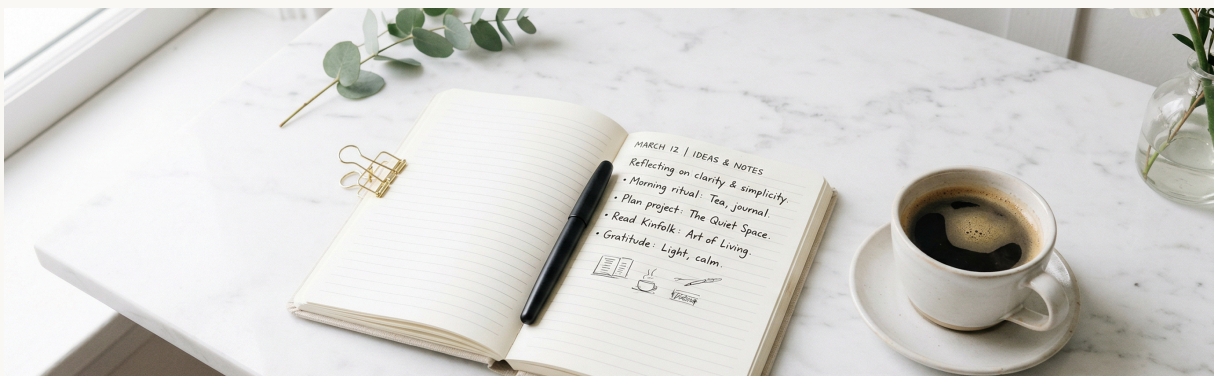 MARCH 12 | IDEAS & NOTES
Reflecting on clarity & simplicity.
• Morning ritual: Tea, journal.
• Plan project: The Quiet Space.
• Read Kinfolk: Art of Living.
• Gratitude: Light, calm.